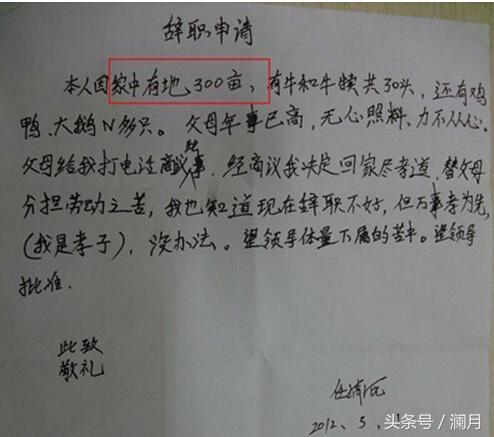 辞职申请
本人因家中有地300亩,有牛和牛犊共30头,还有鸡
鸭、大鹅N多只。父母年事已高,无心照料、力不从心。
父母给我打电话商议此事,经商议我决定回家尽孝道,替父母
分担劳动之苦,我也知道现在辞职不好,但万事孝为先,
(我是孝子),没办法。望领导体量下属的苦中。望领导
批准.
此致
敬礼
2012、3、
头条号/澜月